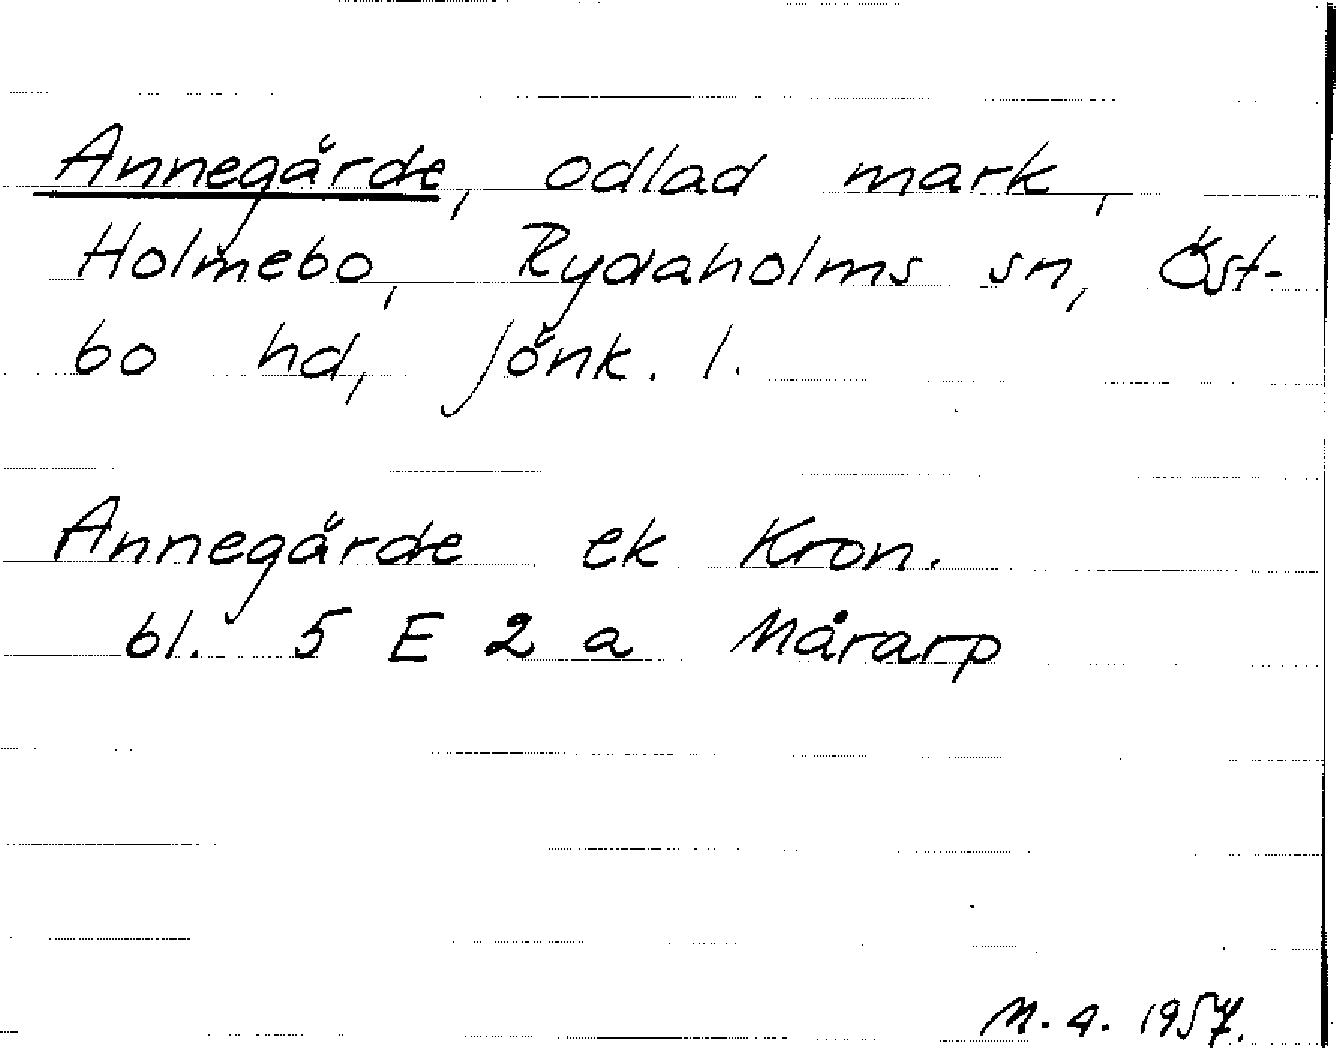 Annegårde, odlad mark,
Holmebo, Rydaholms sn, Öst-
bo hd, Jönk. l.
Annegårde ek Kron.
bl. 5 E 2 a Mårarp
M. A. 1957.